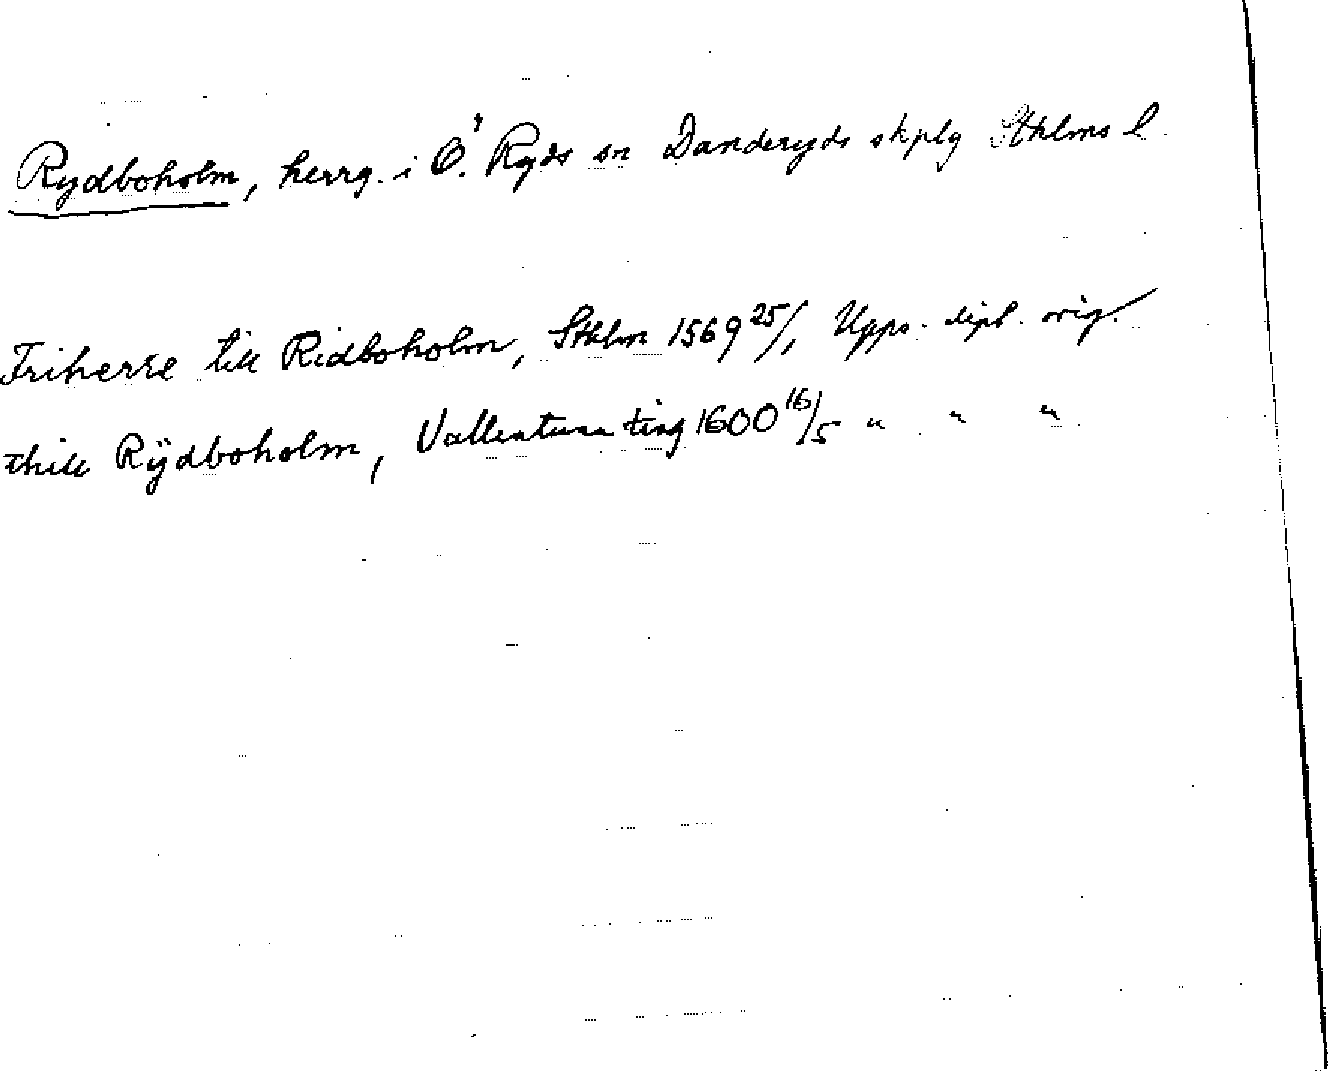 Rydboholm, herrg. i Ö. Ryds sn Danderyds skplg Sthlms l.
Friherre till Ridboholm, Sthlm 1569 25/1, Upps. dipl. orig.
thill Rÿdboholm, Vallentuna ting 1600 16/5 " " "